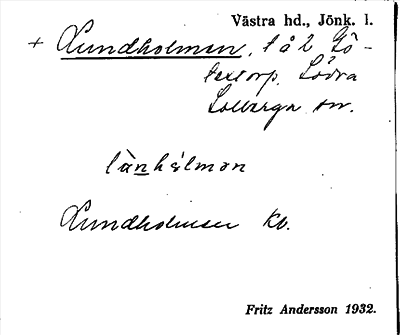 Västra hd., Jönk. l.
+ Lundholmen, l å 2 Gö-
Södra
Solberga sn.
lànhólmən
Lundholmen Kb.
Fritz Andersson 1932.